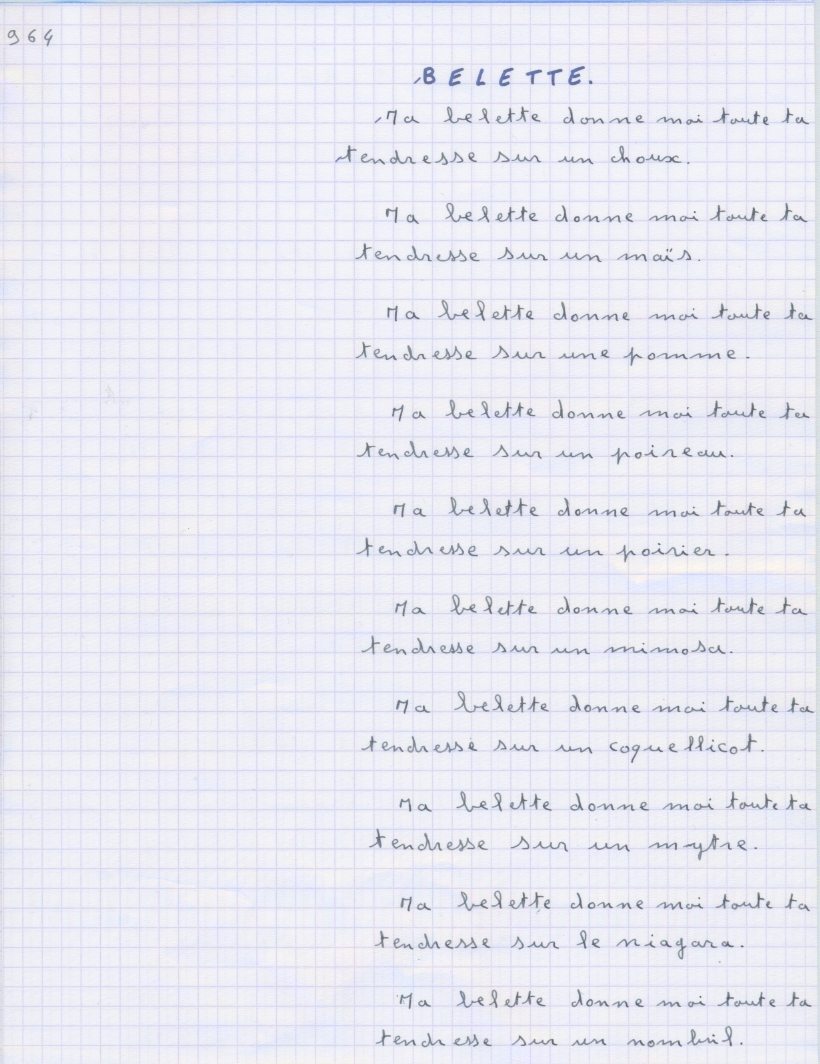 964
BELETTE.
Ma belette donne moi toute ta
tendresse sur un choux.
Ma belette donne moi toute ta
tendresse sur un maïs.
Ma belette donne moi toute ta
tendresse sur une pomme.
Ma belette donne moi toute ta
tendresse sur un poireau.
Ma belette donne moi toute ta
tendresse sur un poirier.
Ma belette donne moi toute ta
tendresse sur un mimosa.
Ma belette donne moi toute ta
tendresse sur un coquellicot.
Ma belette donne moi toute ta
tendresse sur un mytre.
Ma belette donne moi toute ta
tendresse sur le niagara.
Ma belette donne moi toute ta
tendresse sur un nombril.